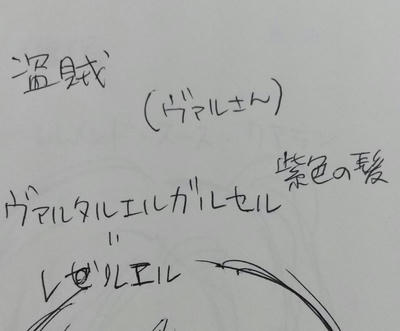 盗賊
(ヴァルさん)
紫色の髪
ヴァルタルエルガルセル
=
レゼリルエル